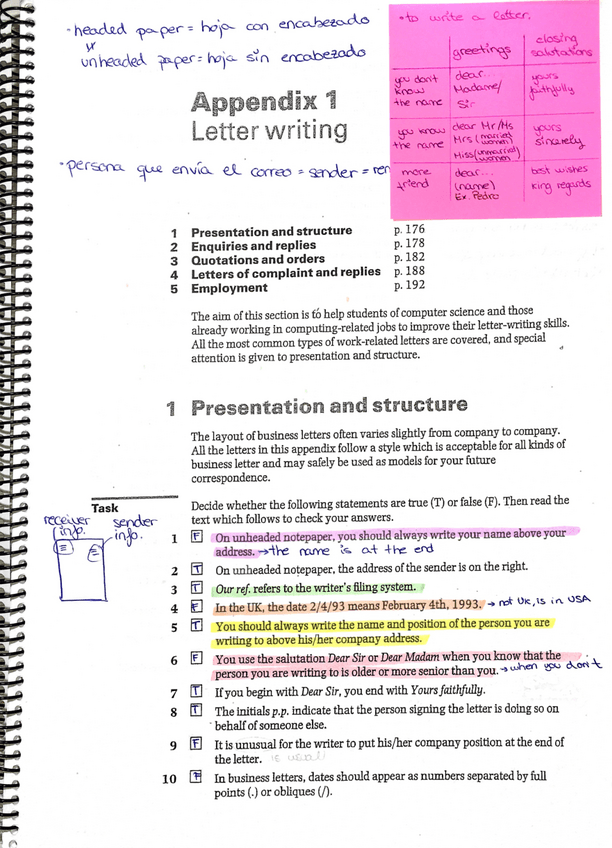 • headed paper = hoja con encabezado
unheaded paper = hoja sin encabezado
• to write a letter.
greetings
closing salutations
you don't know the name
dear... Madame/ Sir
yours faithfully
you know the name
dear Mr/Ms Mrs (married women) Miss (unmarried women)
yours sincerely
more friend
dear... (name) Ex. Pedro
best wishes king regards
Appendix 1
Letter writing
• persona que envía el correo = sender =
1 Presentation and structure p. 176
2 Enquiries and replies p. 178
3 Quotations and orders p. 182
4 Letters of complaint and replies p. 188
5 Employment p. 192
The aim of this section is to help students of computer science and those
already working in computing-related jobs to improve their letter-writing skills.
All the most common types of work-related letters are covered, and special
attention is given to presentation and structure.
1 Presentation and structure
The layout of business letters often varies slightly from company to company.
All the letters in this appendix follow a style which is acceptable for all kinds of
business letter and may safely be used as models for your future
correspondence.
Task
receiver info.
sender info.
Decide whether the following statements are true (T) or false (F). Then read the
text which follows to check your answers.
1 F On unheaded notepaper, you should always write your name above your
address. → the name is at the end
2 T On unheaded notepaper, the address of the sender is on the right.
3 T Our ref. refers to the writer's filing system.
4 F In the UK, the date 2/4/93 means February 4th, 1993. → not UK, is in USA
5 T You should always write the name and position of the person you are
writing to above his/her company address.
6 F You use the salutation Dear Sir or Dear Madam when you know that the
person you are writing to is older or more senior than you. → when you don't
7 T If you begin with Dear Sir, you end with Yours faithfully.
8 T The initials p.p. indicate that the person signing the letter is doing so on
behalf of someone else.
9 F It is unusual for the writer to put his/her company position at the end of
the letter. is usual
10 F In business letters, dates should appear as numbers separated by full
points (.) or obliques (/).